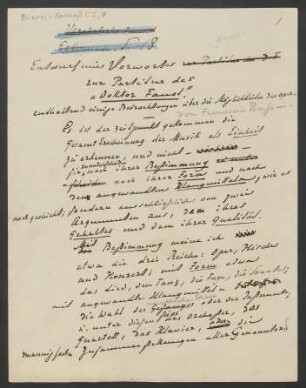 Busoni-Nachlaß C I, 
Entwurf eines Vorwortes
zur Partitur des
„Doktor Faust"
enthaltend einige Betrachtungen über die Möglichkeiten der Oper
von Ferruccio Busoni
Es ist der Zeitpunkt gekommen die
Gesamt-Erscheinung der Musik als Einheit
zu erkennen, und nicht
sie nach ihrer Bestimmung
nach ihrer Form und nach
den angewandten Klangmitteln, wie es
noch geschieht, sondern ausschließlich von zwei
Argumenten aus, dem ihres
Gehaltes und dem ihrer Qualität.
Mit Bestimmung meine ich
etwa die drei Reiche: Oper, Kirche
und Konzert, mit Form etwa
das Lied, den Tanz, die Fuge, die Sonate;
mit angewandten Klangmitteln
die Wahl des Gesanges oder der Instrumente,
u. unter diesen das Orchester, das
Quartett, das Klavier, oder die
mannigfachen Zusammenstellungen aller Genannten.